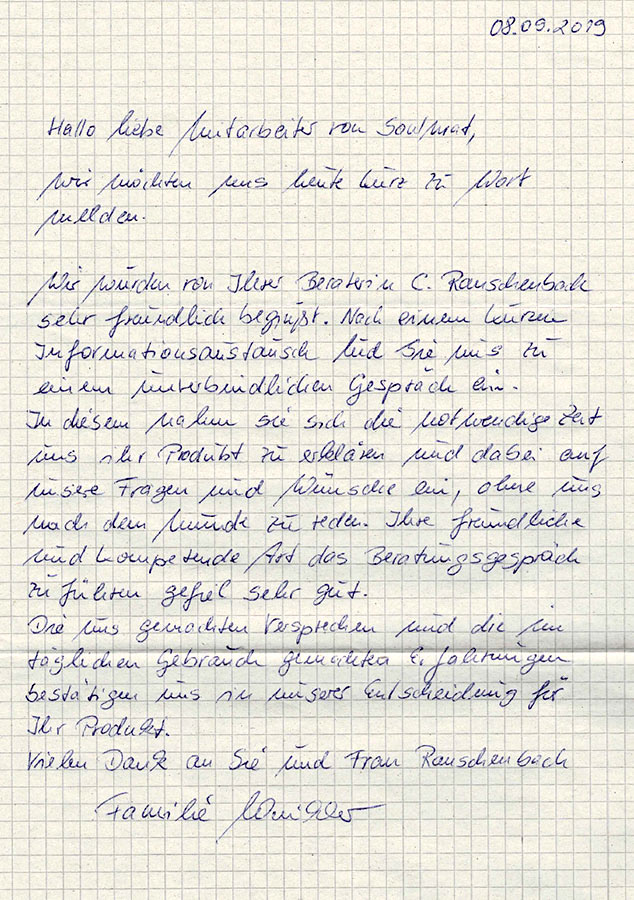 08.09.2019
Hallo liebe Mitarbeiter von
wir möchten uns heute kurz zu Wort
melden.
Wir wurden von Ihrer Beraterin C. Rauschenbach
sehr freundlich begrüßt. Nach einem kurzen
Informationsaustausch lud sie uns zu
einem unverbindlichen Gespräch ein.
In diesem nahm sie sich die notwendige Zeit
uns ihr Produkt zu erklären und dabei auf
unsere Fragen und Wünsche ein, ohne uns
nach dem Munde zu reden. Ihre freundliche
und kompetende Art das Beratungsgespräch
zu führen gefiel sehr gut.
Die uns gemachten Versprechen und die im
täglichen Gebrauch gemachten Erfahrungen
bestätigen uns in unserer Entscheidung für
Ihr Produkt.
Vielen Dank an Sie und Frau Rauschenbach
Familie